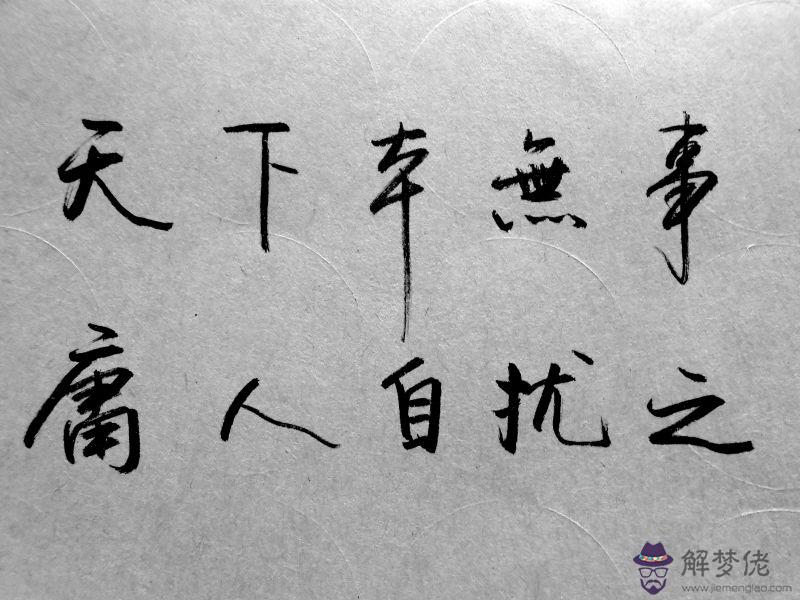 天下本無事
庸人自扰之
解梦佬
www.jiemenglao.com